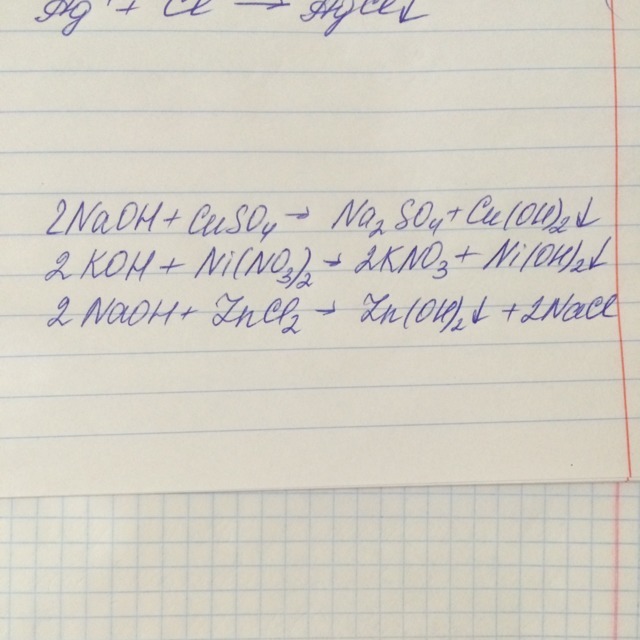 Ag⁺ + Cl → AgCl↓
2NaOH + CuSO₄ → Na₂SO₄ + Cu(OH)₂↓
2KOH + Ni(NO₃)₂ → 2KNO₃ + Ni(OH)₂↓
2NaOH + ZnCl₂ → Zn(OH)₂↓ + 2NaCl